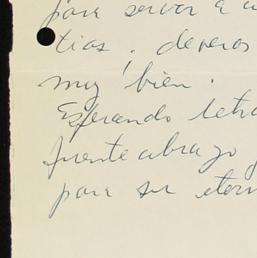 para servar a u
tias. deveras
muy bien.
Esperando letra
fuerte abrazo y
para su etern